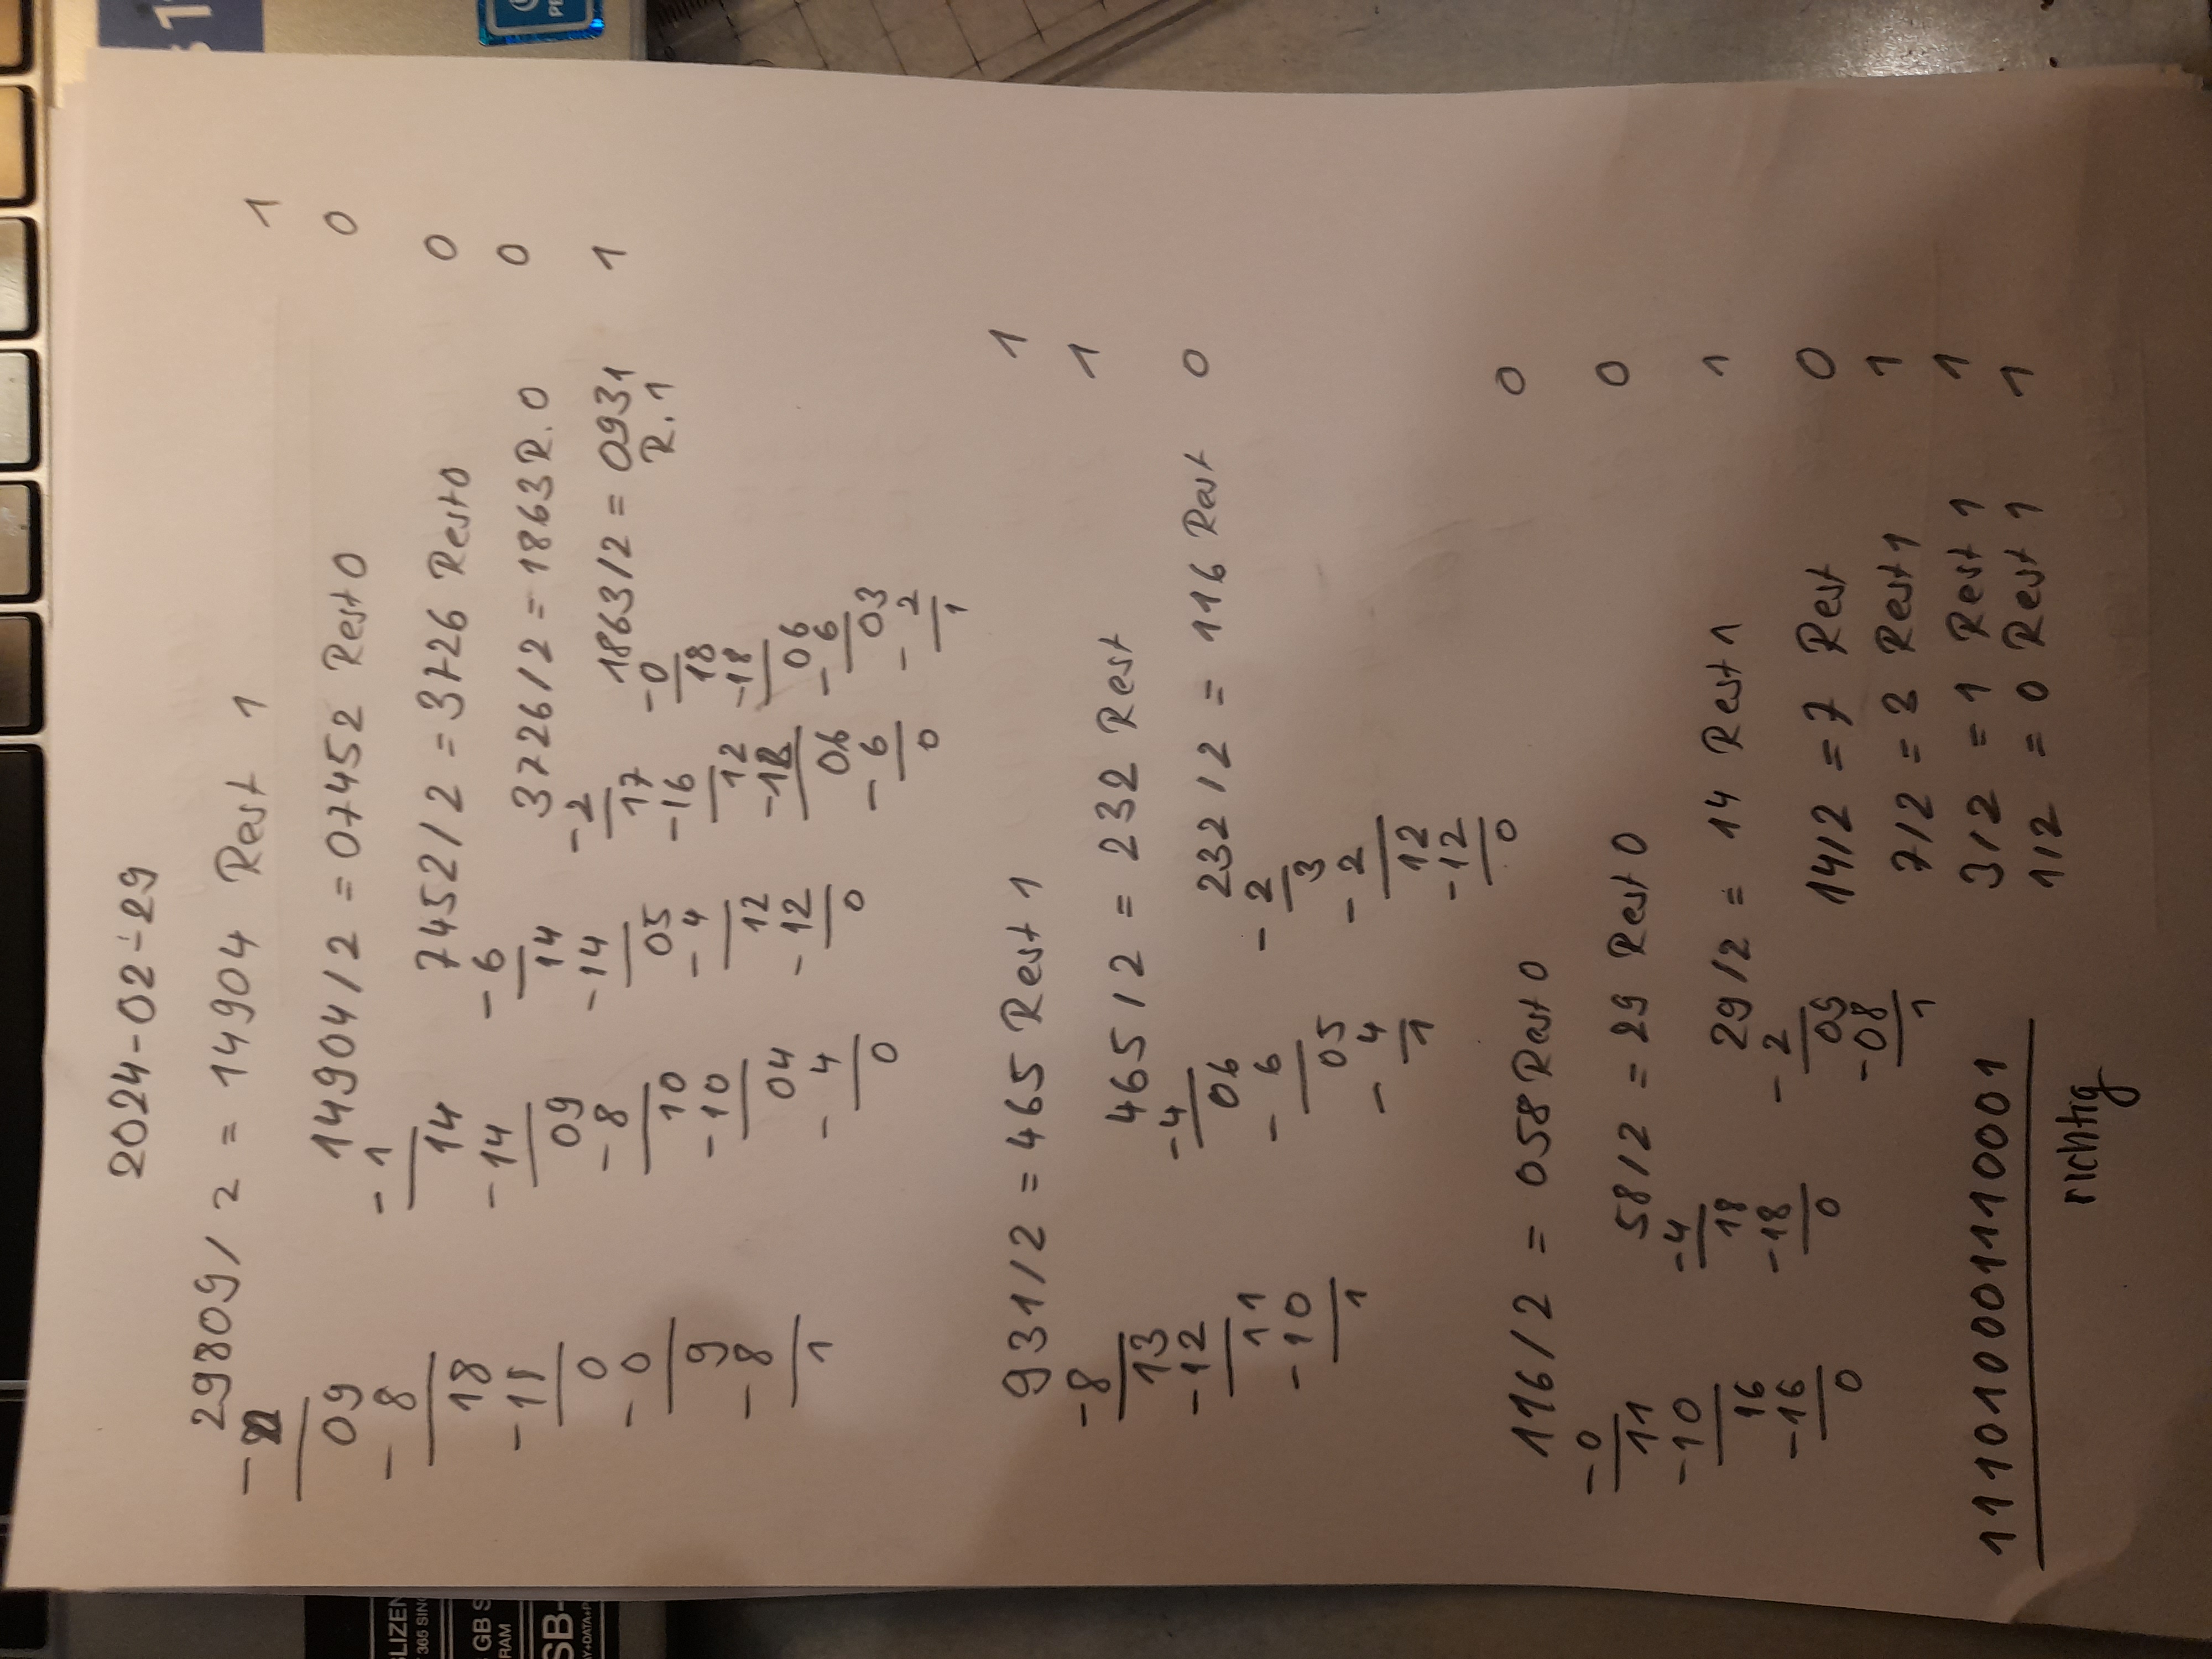 2024-02-29
29809/2 = 14904 Rest 1 1
-2
09
-8
18
-18
0
-0
9
-8
1
14904/2 = 07452 Rest 0 0
-1
14
-14
09
-8
10
-10
04
-4
0
7452/2 = 3726 Rest 0 0
-6
14
-14
05
-4
12
-12
0
3726/2 = 1863 R. 0 0
-2
17
-16
12
-12
06
-6
0
1863/2 = 0931 1
R. 1
-0
18
-18
06
-6
03
-2
1
931/2 = 465 Rest 1 1
-8
13
-12
11
-10
1
465/2 = 232 Rest 1
-4
06
-6
05
-4
1
232/2 = 116 Rest 0
-2
3
-2
12
-12
0
116/2 = 058 Rest 0 0
-0
11
-10
16
-16
0
58/2 = 29 Rest 0 0
-4
18
-18
0
29/2 = 14 Rest 1 1
-2
09
-08
1
14/2 = 7 Rest 0
7/2 = 3 Rest 1 1
3/2 = 1 Rest 1 1
1/2 = 0 Rest 1 1
111010001110001
richtig
365
GB
RAM